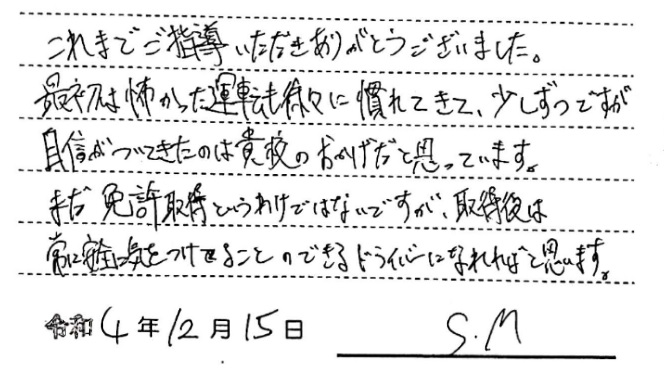 これまでご指導いただきありがとうございました。
最初は怖かった運転も徐々に慣れてきて、少しずつですが
自信がついてきたのは貴校のおかげだと思っています。
まだ免許取得というわけではないですが、取得後は
常に安全に気をつけせることのできるドライバーになれればと思います。
令和4年12月15日
S.M